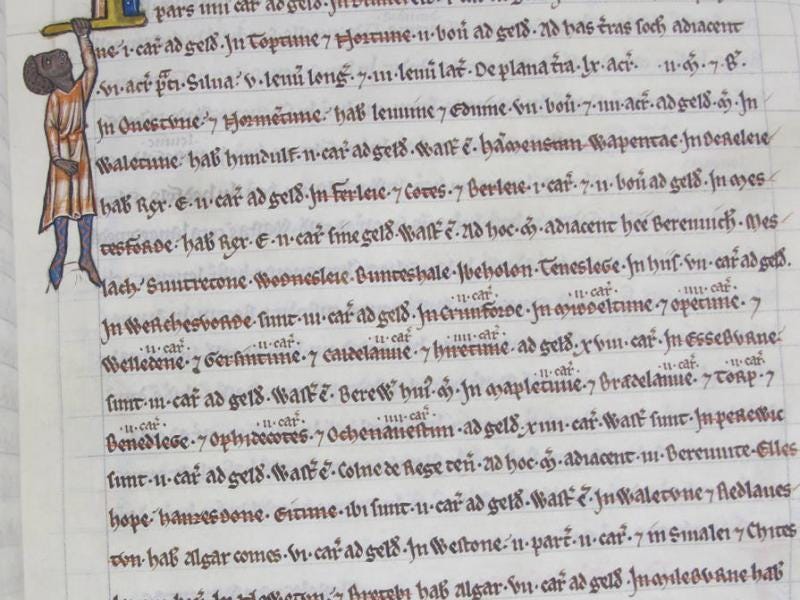 pars iiii car̄ ad geld̄. In
ne· i· car̄ ad geld̄. In Toptune ⁊ Nortune· ii· bou̅ ad geld̄. Ad has t̄ras soch̄ adiacent
·vi· acr̄ p̄ti· Silua· v· leuu̅ long̅· ⁊ ·iii· leuu̅ lat̅. De plana t̄ra· lx· acr̄. ·ii· m̅· ⁊ B̅.
In Onestune· ⁊ Normetune· hab̅ leuuine ⁊ Eduine· vii· bou̅· ⁊ ·iiii· acr̄· ad geld̄· m̅· In
Waletune· hab̅ hundulf· ii· car̄ ad geld̄. Wast̅ ē· hamenstan Wapentac· In Dereleie
hab̅ Rex· E· ii· car̄ ad geld̄. In ferleie· ⁊ Cotes· ⁊ Berleie· i· car̄· ⁊ ·ii· bou̅ ad geld̄. In Mes
tesforde· hab̅ Rex· E· ii· car̄ sine geld̄· Wast̅ ē· Ad hoc· m̅· adiacent hee Bereuuich̄· Mes
lach· Snutretone· Wodnesleie· Bunteshale· Ibeholon· Teneslege· In his· vii· car̄ ad geld̄.
In Werchesvorde· sunt· iii· car̄ ad geld̄. In Crunforde· In Middeltune· ⁊ opetune· ⁊
·ii· car̄· ·ii· car̄· ·iiii· car̄·
Welledene· ⁊ Gersintune· ⁊ caldelauue· ⁊ hiretune· ad geld̄· xviii· car̄· In Esseburne·
·ii· car̄· ·ii· car̄· ·ii· car̄· ·iiii· car̄·
sunt· iii· car̄ ad geld̄. Wast̅ ē· Berew̅ hui᷒· m̅· In mapletune· ⁊ Bradelauue· ⁊ Torp· ⁊
·ii· car̄· ·ii· car̄· ·ii· car̄·
Benedlege· ⁊ Ophidecotes· ⁊ Ochenauestun· ad geld̄· xiiii· car̄· Wast̅ sunt· In perewic
·ii· car̄· ·ii· car̄· ·iiii· car̄·
sunt· ii· car̄ ad geld̄. Wast̅ ē· Colne de Rege ten̄· Ad hoc· m̅· adiacent· iii· Bereuuite· Elles
hope· hanzesdone· Eitune· ibi sunt· ii· car̄ ad geld̄· Wast̅ ē· In Waletune ⁊ Redlaues
ton· hab̅ Algar comes· vi· car̄ ad geld̄. In Westone· ii· part̄· ii· car̄· ⁊ in Smalei ⁊ Chites
⁊ Bretebi hab̅ Algar· vii· car̄ ad geld̄. In mileburne hab̅